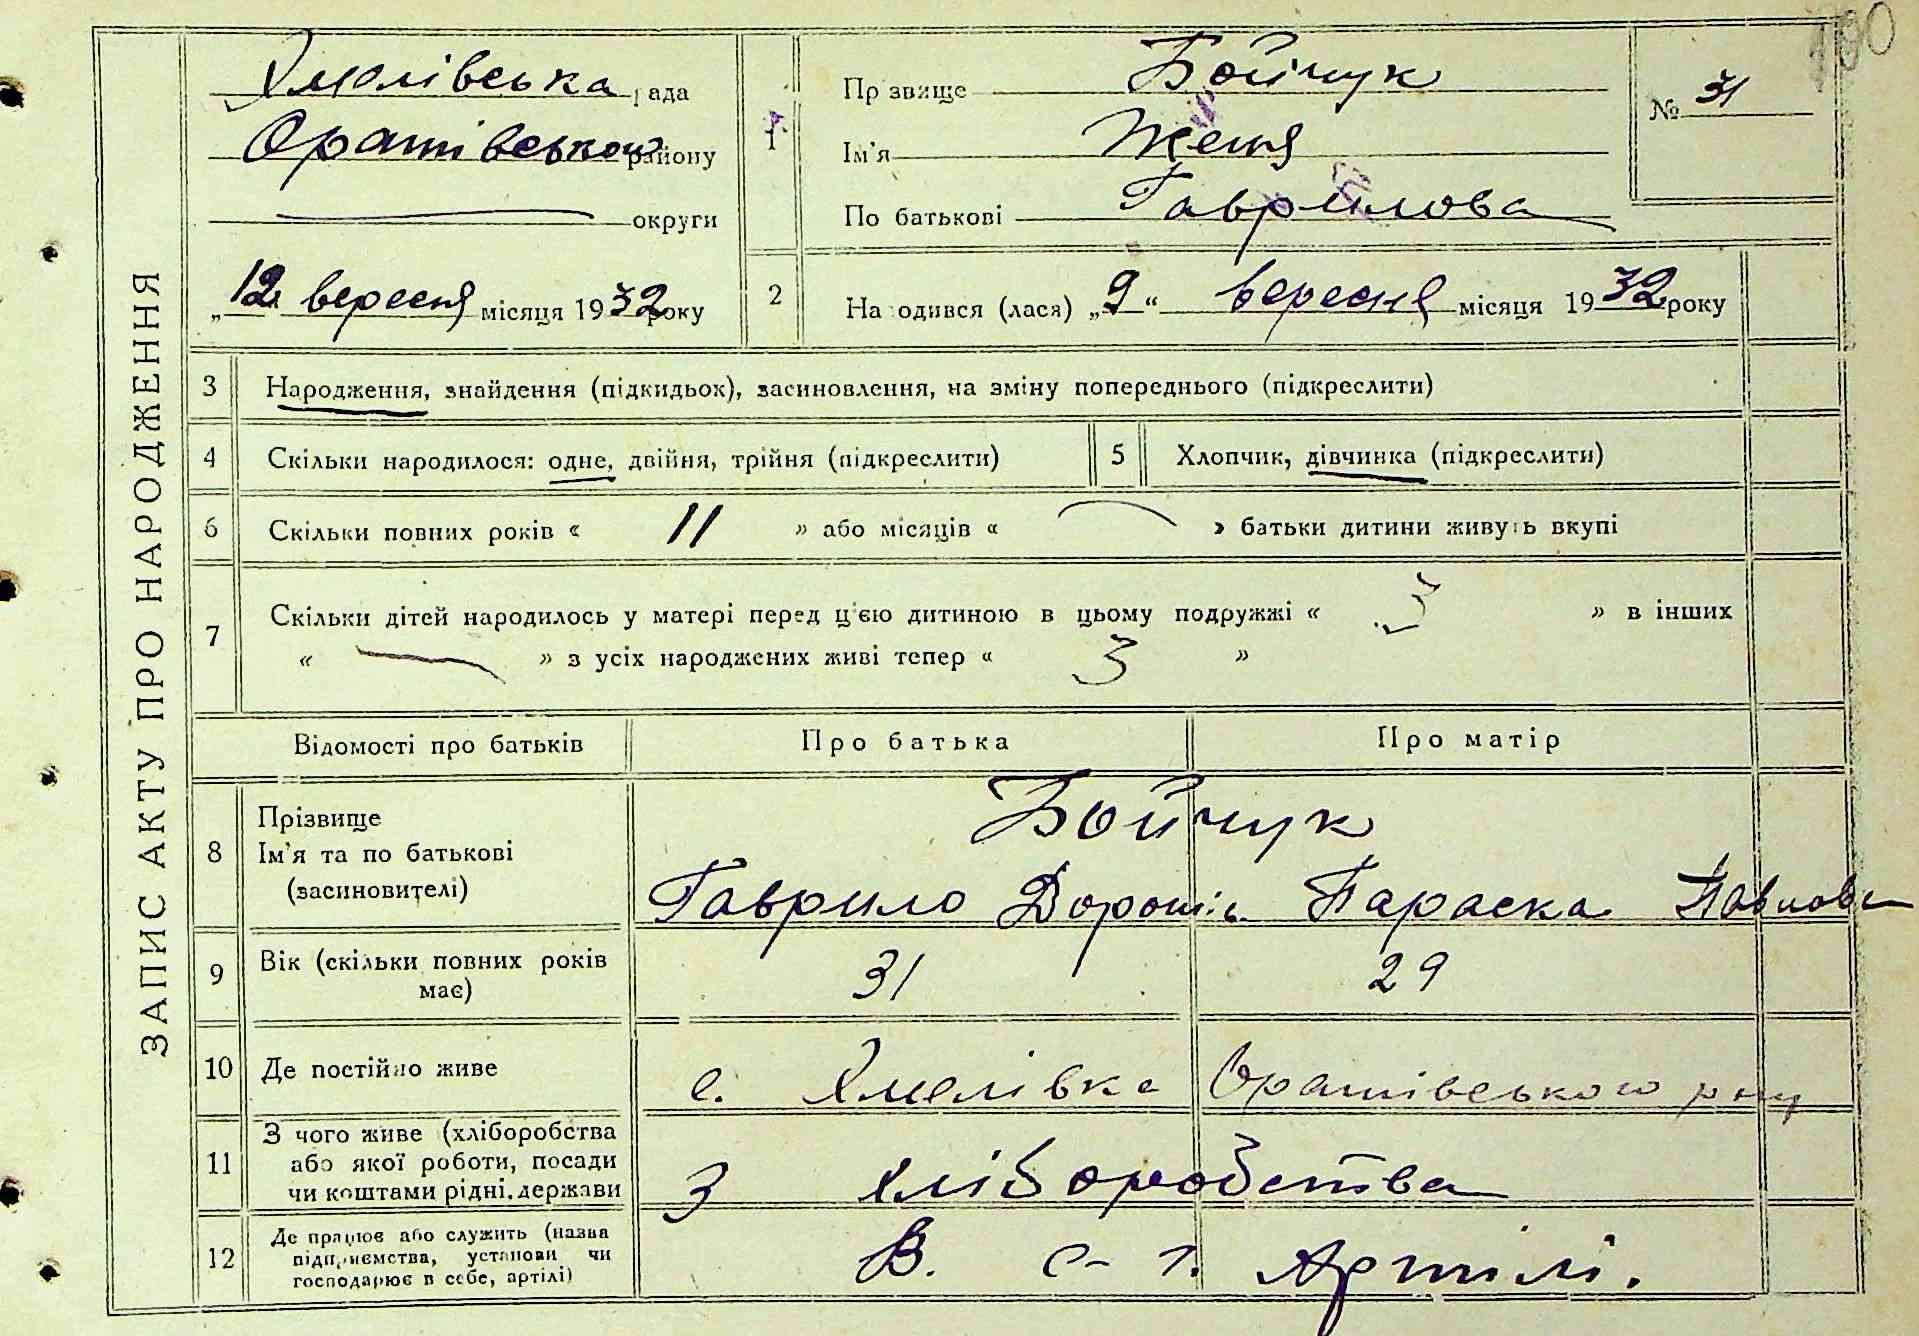 100
ЗАПИС АКТУ ПРО НАРОДЖЕННЯ
Хмелівська рада
Оратівського району
округи
„12 вересня місяця 1932 року
1
Прізвище Бойчук
Ім'я Женя
По батькові Гаврилова
№ 31
2
Народився (лася) „9“ вересня місяця 1932 року
3 Народження, знайдення (підкидьок), засиновлення, на зміну попереднього (підкреслити)
4 Скільки народилося: одне, двійня, трійня (підкреслити)
5 Хлопчик, дівчинка (підкреслити)
6 Скільки повних років « 11 » або місяців « » батьки дитини живуть вкупі
7 Скільки дітей народилось у матері перед ц'єю дитиною в цьому подружжі « 3 » в інших
« » з усіх народжених живі тепер « 3 »
Відомості про батьків Про батька Про матір
8 Прізвище
Ім'я та по батькові
(засиновителі)
Бойчук
Гаврило Параска Павлова
9 Вік (скільки повних років
має)
31 29
10 Де постійно живе с. Хмелівка Оратівського р-ну
11 З чого живе (хліборобства
або якої роботи, посади
чи коштами рідні, держави
З хліборобства
12 Де працює або служить (назва
підприємства, установи чи
господарює в себе, артілі)
В. с-г. Артілі.